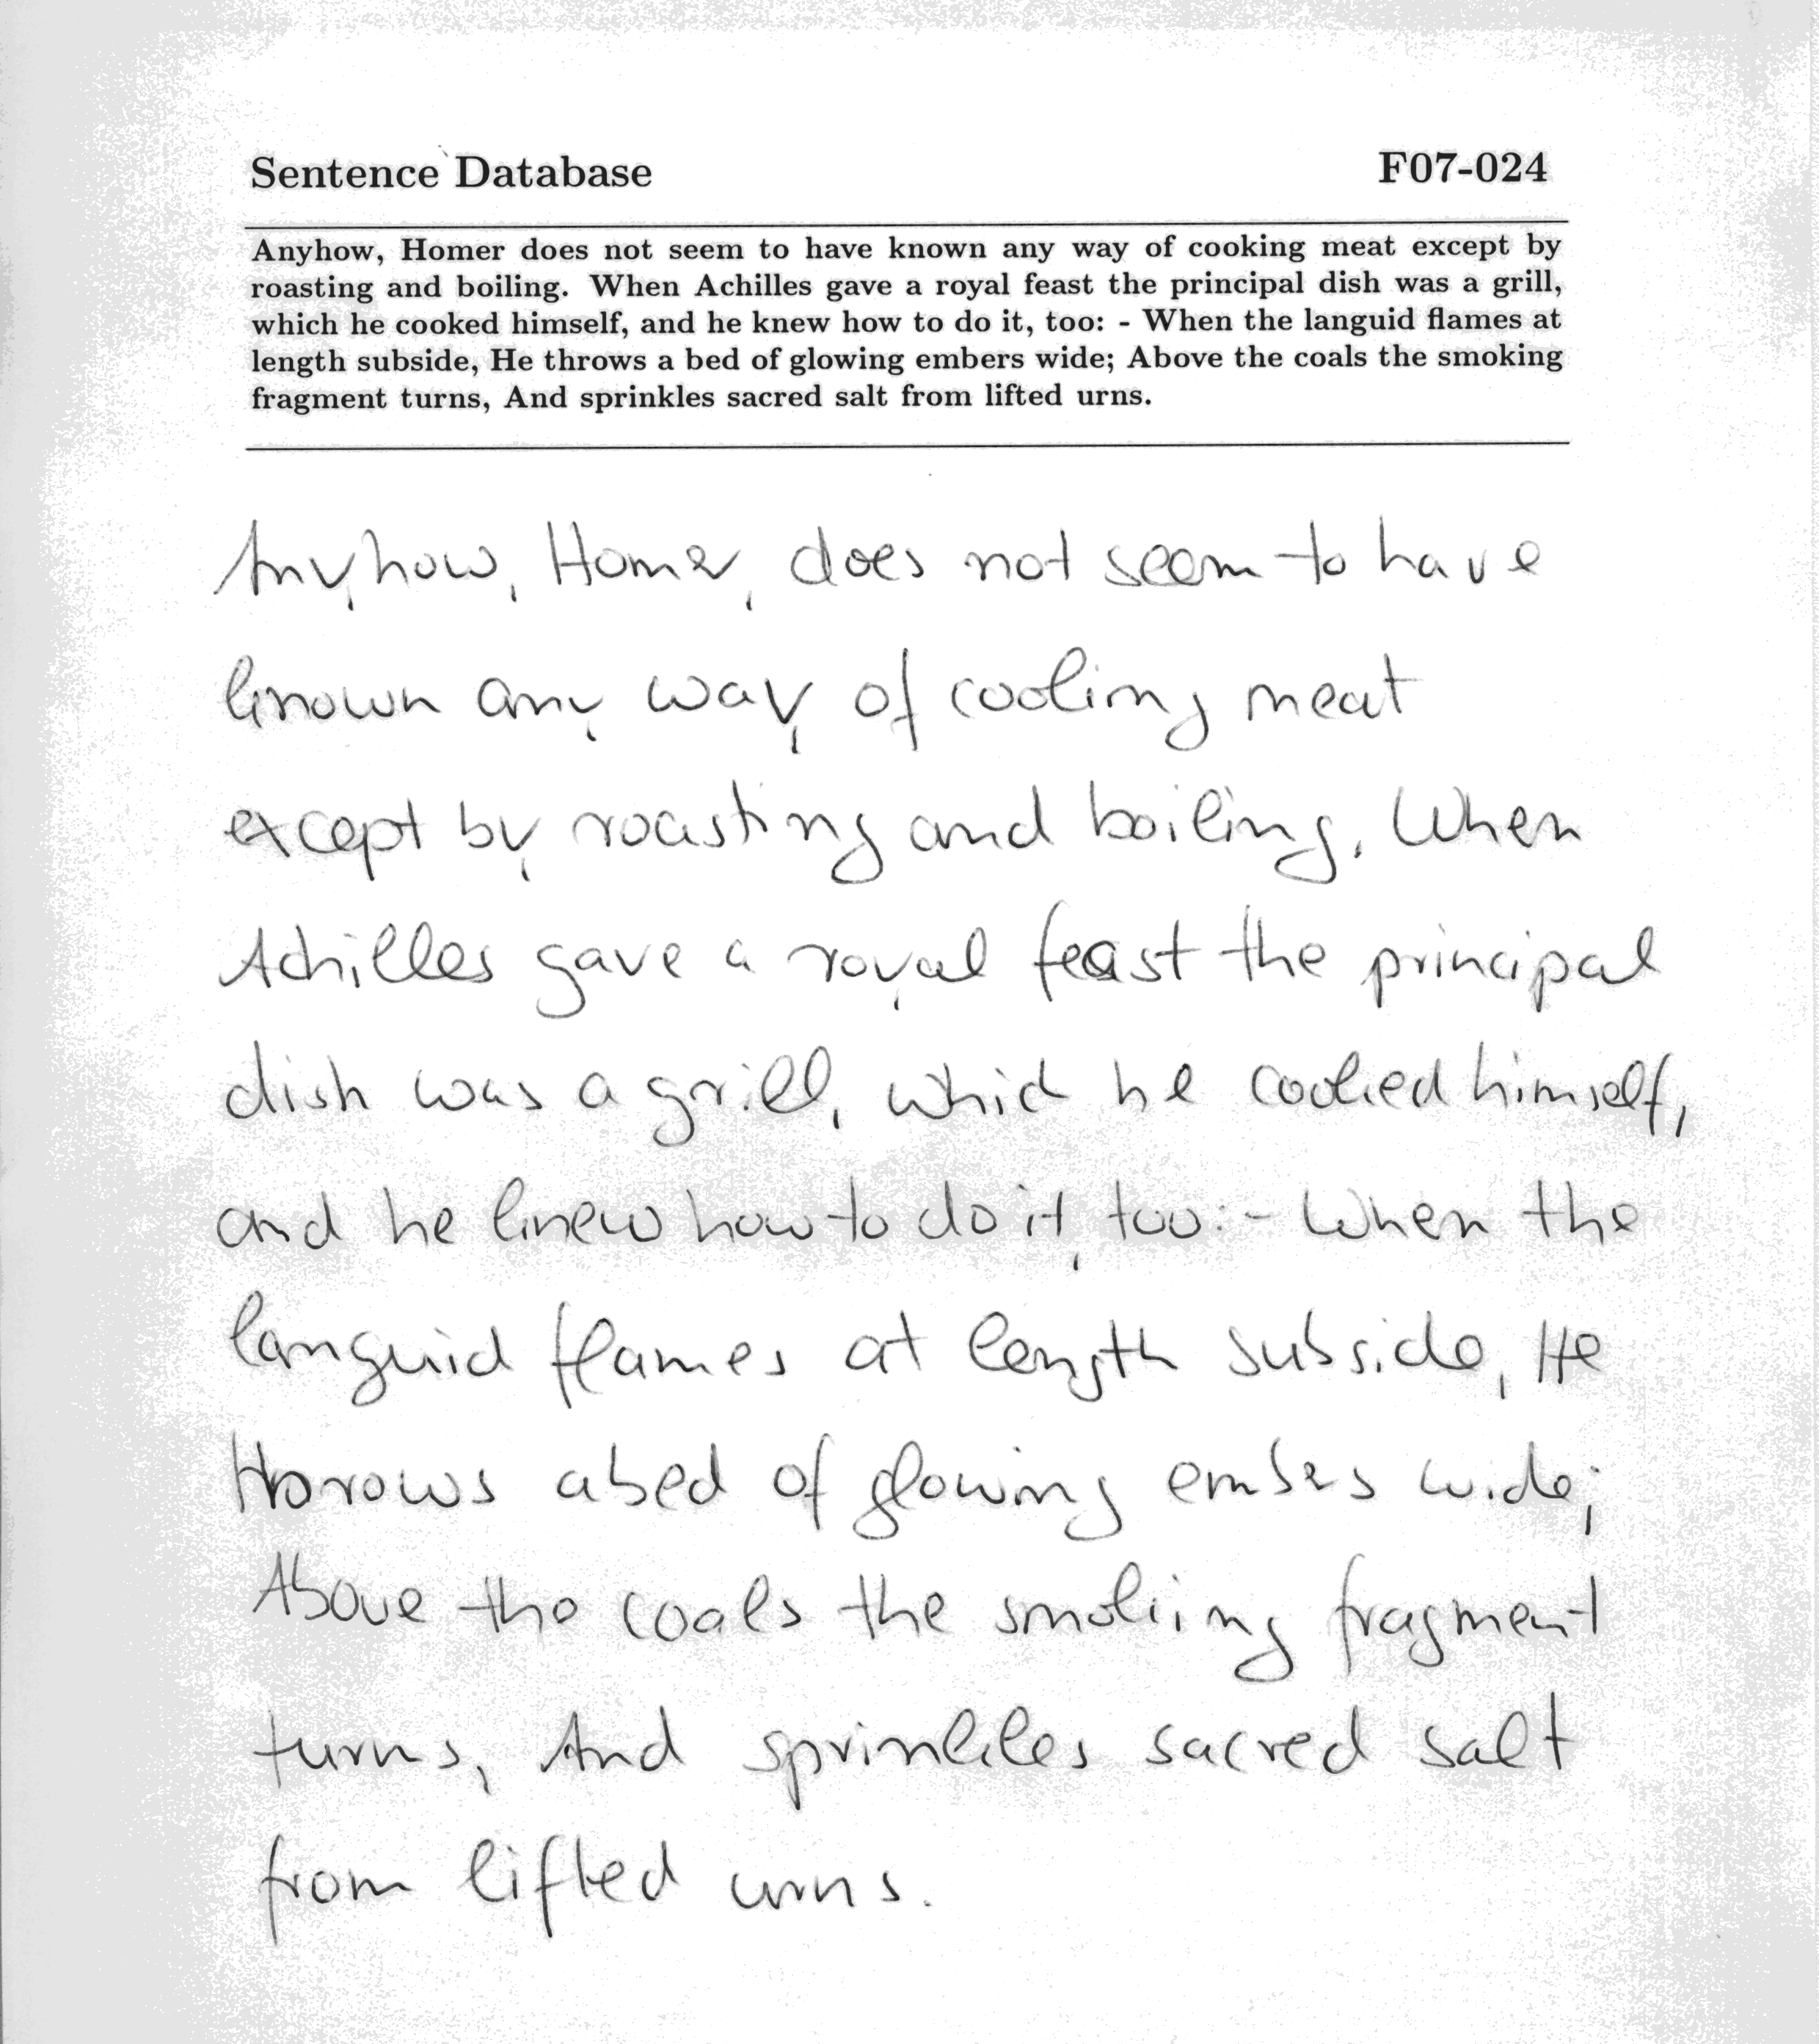 Sentence Database F07-024
Anyhow, Homer does not seem to have known any way of cooking meat except by
roasting and boiling. When Achilles gave a royal feast the principal dish was a grill,
which he cooked himself, and he knew how to do it, too: - When the languid flames at
length subside, He throws a bed of glowing embers wide; Above the coals the smoking
fragment turns, And sprinkles sacred salt from lifted urns.
Anyhow, Homer, does not seem to have
known any way of cooking meat
except by roasting and boiling. When
Achilles gave a royal feast the principal
dish was a grill, which he cooked himself,
and he knew how to do it, too: - When the
languid flames at length subside, He
throws a bed of glowing embers wide;
Above the coals the smoking fragment
turns, And sprinkles sacred salt
from lifted urns.